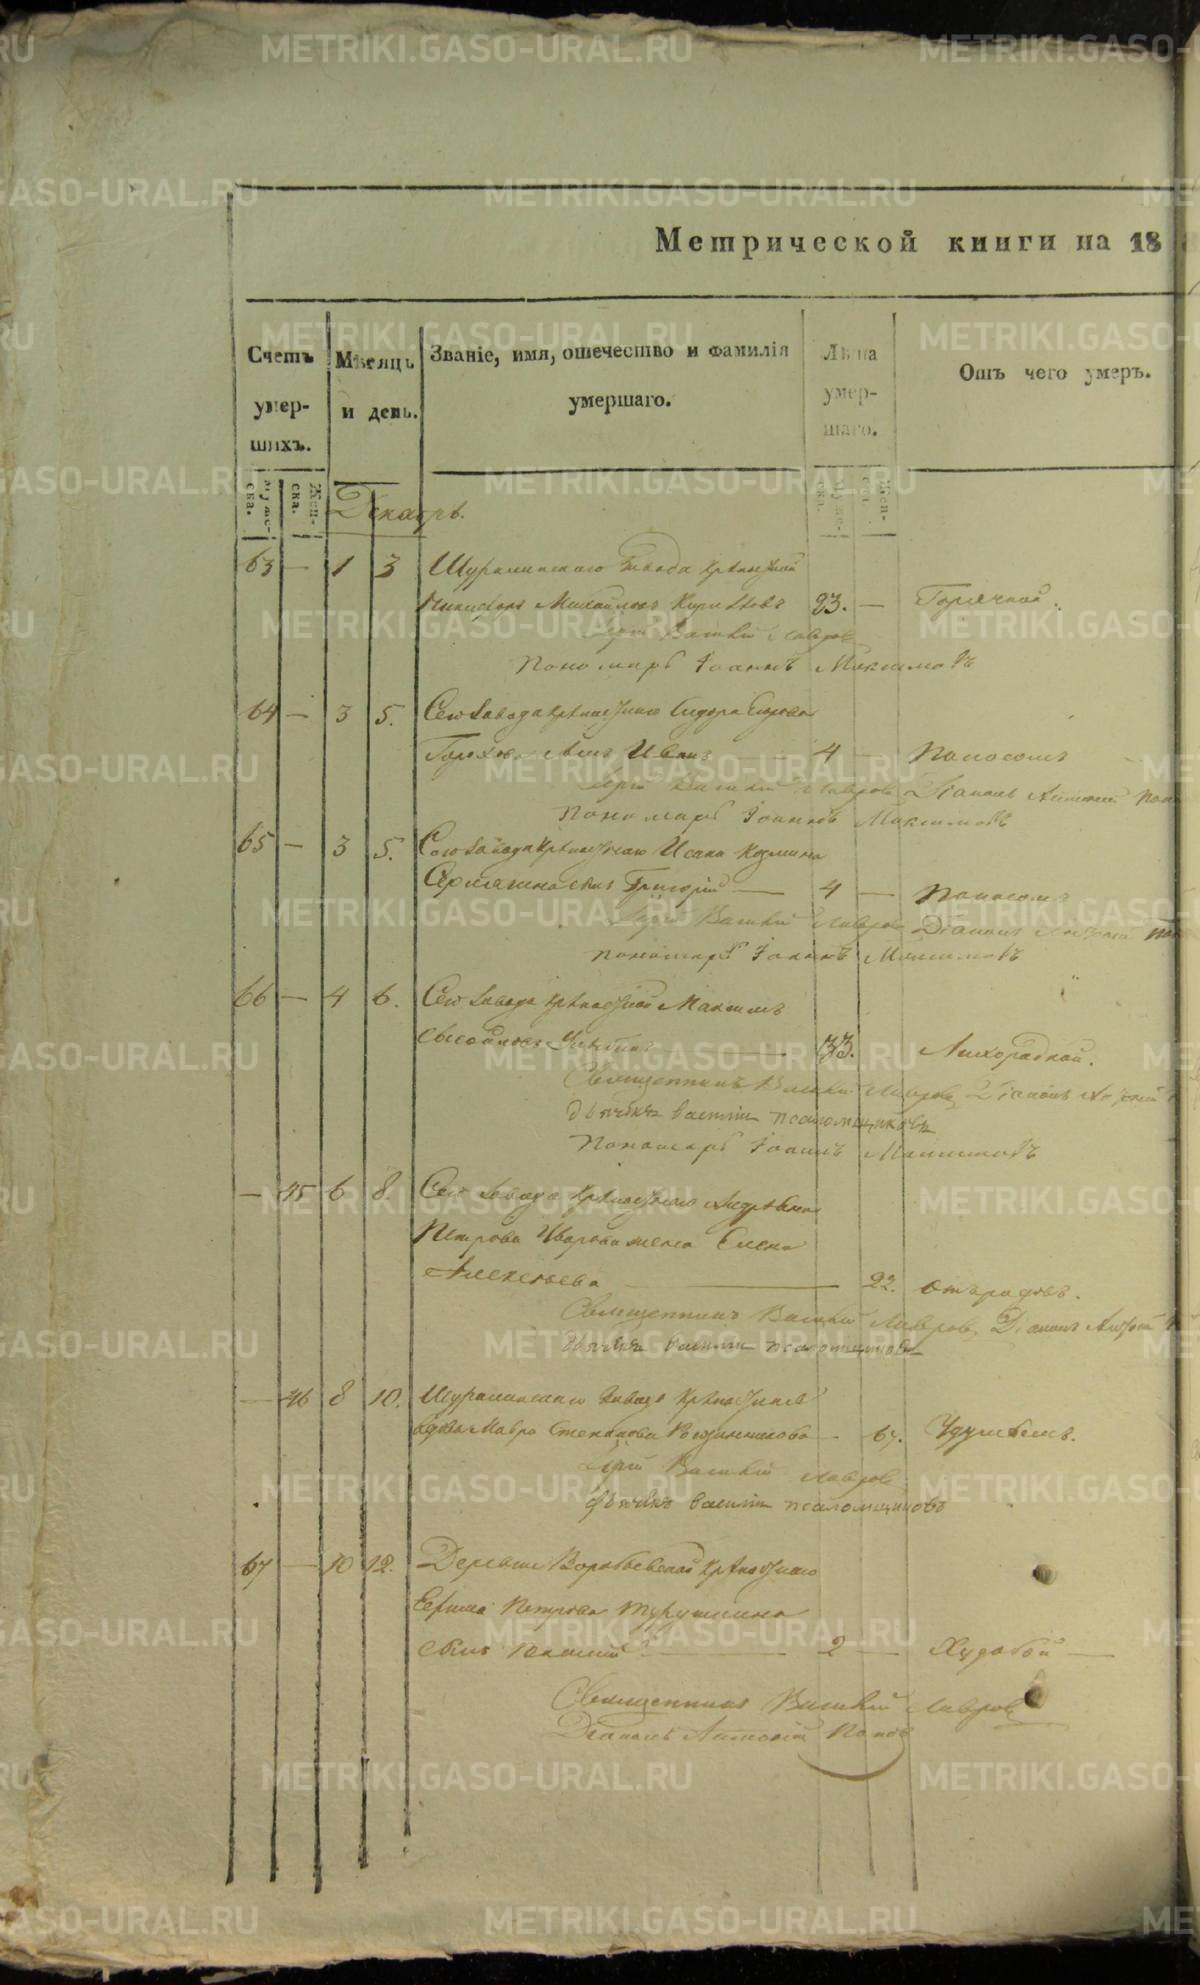 Метрической книги на 18
Счетъ умер-шихъ.
Мѣсяцъ и день.
Званіе, имя, отечество и фамилія умершаго.
Лѣта умер-шаго.
Отъ чего умеръ.
Муже-ска. Жен-ска.
Муже-ска. Жен-ска.
Декабрь.
63 — 1 3 Шуралинскаго Завода
Никифоръ Михайловъ 23. — Горячкой.
Іерей Василій Лавровъ
Пономарь Іоаннъ Максимовъ
64 — 3 5. Сего Завода Сидора Егорова
Горохова сынъ Иванъ — 4 — Поносомъ
Іерей Василій Лавровъ Діаконъ Антоній
Пономарь Іоаннъ Максимовъ
65 — 3 5. Сего Завода Исака Козмина
сынъ Григорій — 4 — Поносомъ
Іерей Василій Лавровъ Діаконъ Антоній
Пономарь Іоаннъ Максимовъ
66 — 4 6. Сего Завода Максимъ
— 33. Лихорадкой.
Священникъ Василій Лавровъ Діаконъ Антоній
дьячекъ Василій Псаломщиковъ
Пономарь Іоаннъ Максимовъ
— 45 6 8. Сего Завода Андреяна
Петрова Уварова жена Елена
Алексѣева — 22. отъ родовъ.
Священникъ Василій Лавровъ Діаконъ Антоній
дьячекъ Василій Псаломщиковъ
— 46 8 10. Шуралинскаго Завода
вдова Мавра Степанова — 67. Удушьемъ.
Іерей Василій Лавровъ
дьячекъ Василій Псаломщиковъ
67 — 10 12. Деревни Воробьевской
Ефима Петрова
сынъ — 2 — Худобой —
Священникъ Василій Лавровъ
Діаконъ Антоній Поповъ
METRIKI.GASO-URAL.RU